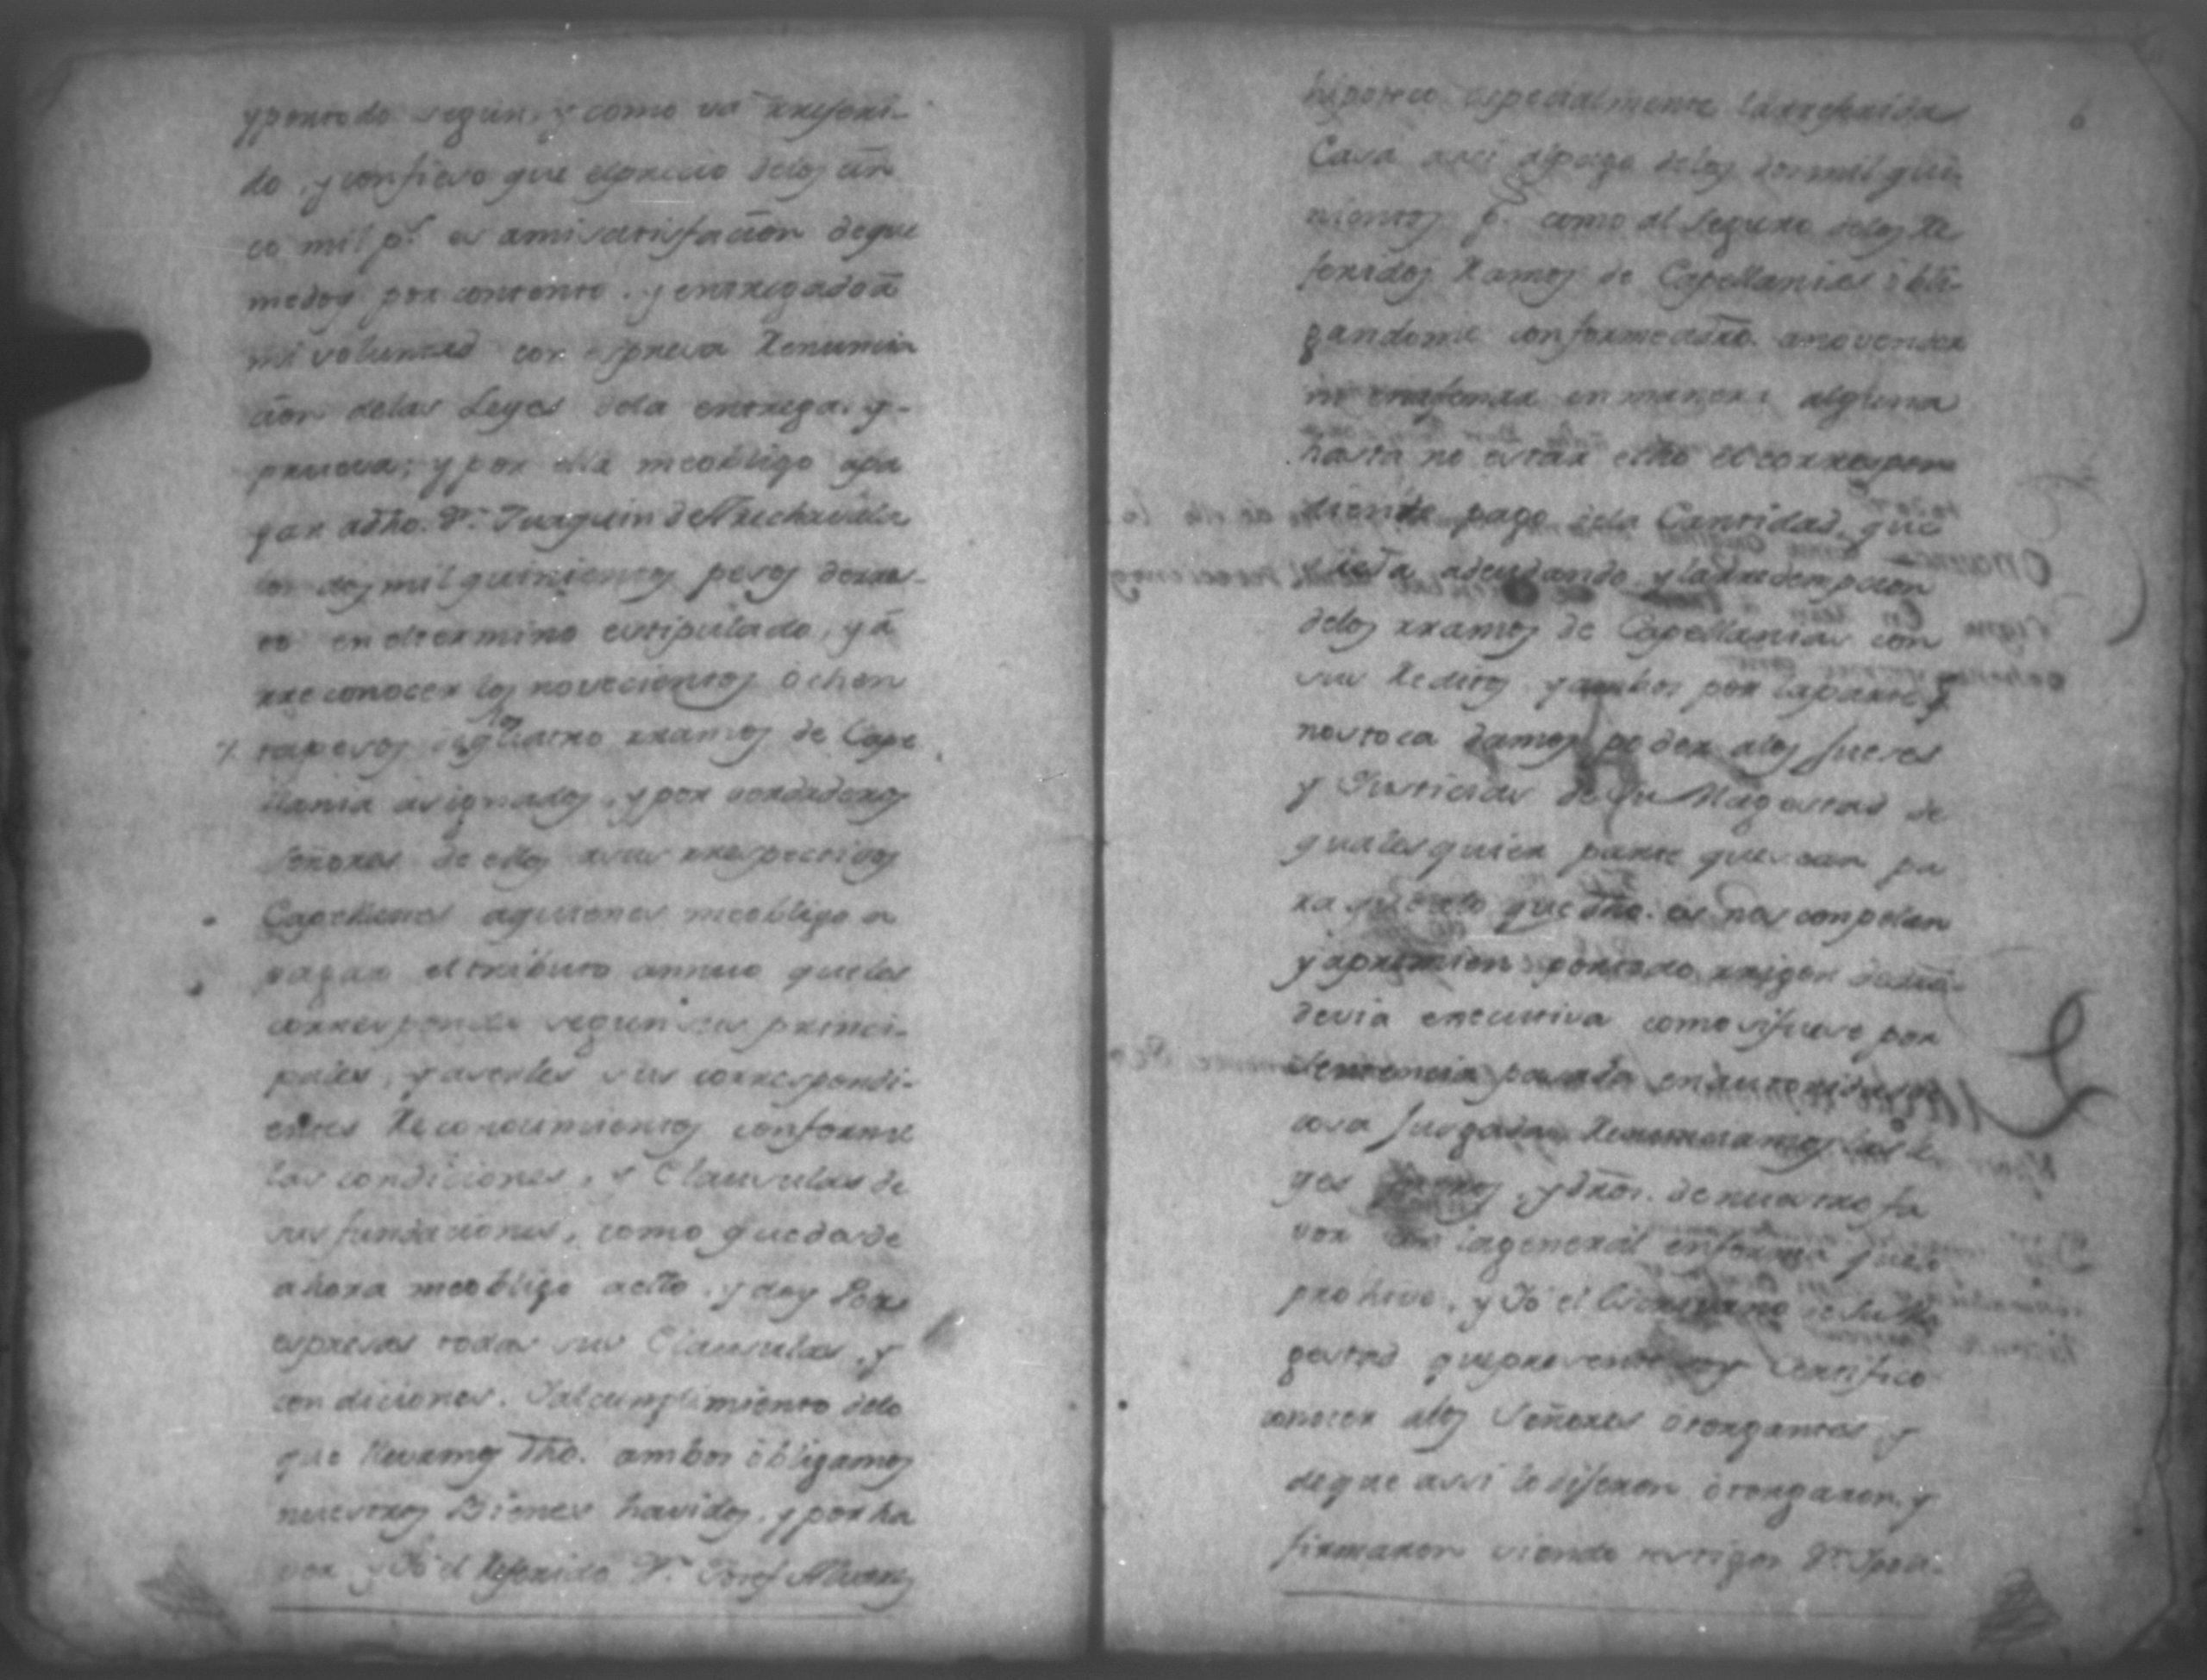 y por todo segun, y como va rreferi-
do, y confieso que el precio delos cin
co mil p.s es ami satisfacion deque
medoy por contento, y entregado â
mi voluntad con espresa Renuncia
cion delas Leyes dela entrega, y-
prueva; y por ella meobligo apa
gar adho. Dn. Juaquin de Arechavala
los dos mil quinientos pesos
en eltermino estipulado, y â
rreconocer los novecientos ochen
ta pesos los quatro rramos de Cape
llania asignados, y por verdaderos
Señores de ellos asus rrespectivos
Capellanes aquienes meobligo a
pagar el tributo annuo queles
corresponde segun sus princi-
pales, y aserles sus correspondi-
entes Reconocimientos conforme
las condiciones, y Clausulas de
sus fundaciones, como quedasde
ahora meobligo aello, y doy Por
espresas todas sus Clausulas, y
condiciones. Y alcumplimiento delo
que llevamos dho. ambos obligamos
nuestros Bienes havidos, y por ha
ver y Yo el Referido Dn. Josef Alvares
6
hipoteco especialmente la rreferida
Casa asi al pago delos dos mil qui-
nientos p.s como al Seguro delos Re
feridos Ramos de Capellanias obli-
gandome conforme adro. ano vender
ni enagenar en manera alguna
hasta no estar echo el correspon
diente pago dela Cantidad, que
adeudando y la rredempcion
delos rramos de Capellanias con
sus Reditos, y ambos por la parte q
nos toca damos poder alos Jueses
y Justicias de Su Magestad de
qualesquier parte que sean pa
ra que dho. es nos conpelan
y apremien por todo rrigor
devia executiva como sifuese por
Sentencia pasada en autoridad de
cosa Jusgada, Renunciamos las Le
yes fueros, y dros. de nuestro fa
vor con lageneral en forma quelo
prohive, y Yo el Escrivano de Su Ma
gestad que presente soy Certifico
conocer alos Señores otorgantes, y
deque assi lo dijeron otorgaron, y
firmaron siendo testigos Dn.